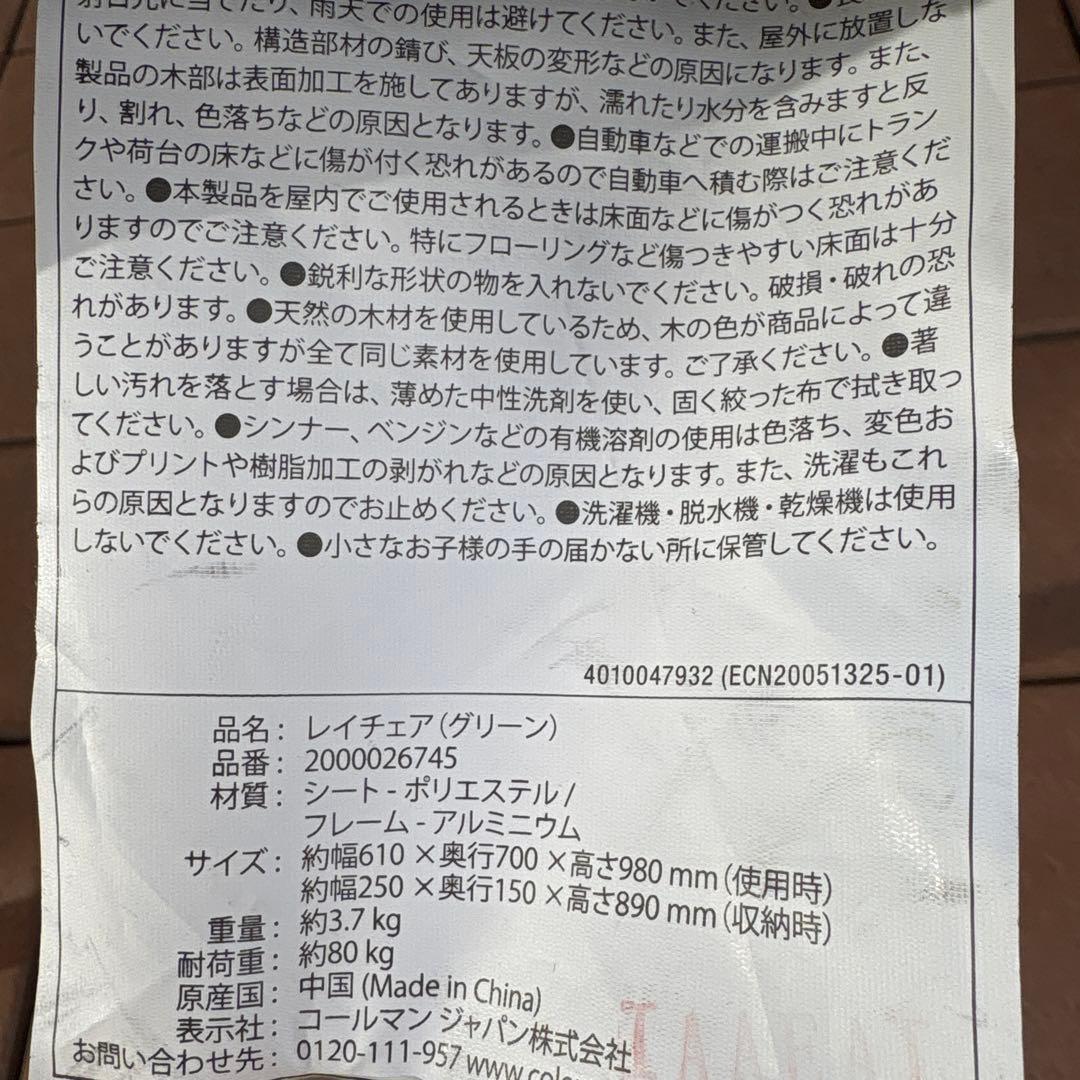 射日光に当てたり、雨天での使用は避けてください。また、屋外に放置しな
いでください。構造部材の錆び、天板の変形などの原因になります。また、
製品の木部は表面加工を施してありますが、濡れたり水分を含みますと反
り、割れ、色落ちなどの原因となります。●自動車などでの運搬中にトラン
クや荷台の床などに傷が付く恐れがあるので自動車へ積む際はご注意くだ
さい。●本製品を屋内でご使用されるときは床面などに傷がつく恐れがあ
りますのでご注意ください。特にフローリングなど傷つきやすい床面は十分
ご注意ください。●鋭利な形状の物を入れないでください。破損・破れの恐
れがあります。●天然の木材を使用しているため、木の色が商品によって違
うことがありますが全て同じ素材を使用しています。ご了承ください。●著
しい汚れを落とす場合は、薄めた中性洗剤を使い、固く絞った布で拭き取っ
てください。●シンナー、ベンジンなどの有機溶剤の使用は色落ち、変色お
よびプリントや樹脂加工の剥がれなどの原因となります。また、洗濯もこれ
らの原因となりますのでお止めください。●洗濯機・脱水機・乾燥機は使用
しないでください。●小さなお子様の手の届かない所に保管してください。
4010047932 (ECN20051325-01)
品名： レイチェア（グリーン）
品番： 2000026745
材質： シート - ポリエステル /
フレーム - アルミニウム
サイズ： 約幅610 ×奥行700 ×高さ980 mm（使用時）
約幅250 ×奥行150 ×高さ890 mm（収納時）
重量： 約3.7 kg
耐荷重： 約80 kg
原産国： 中国 (Made in China)
表示社： コールマン ジャパン株式会社
お問い合わせ先： 0120-111-957